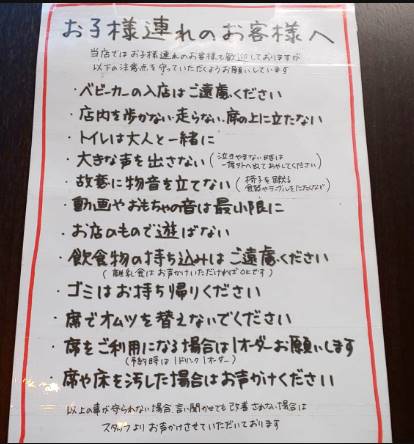 お子様連れのお客様へ
当店ではお子様連れのお客様も歓迎しておりますが
以下の注意点を守っていただくようお願いしています
・ベビーカーの入店はご遠慮ください
・店内を歩かない・走らない、席の上に立たない
・トイレは大人と一緒に
・大きな声を出さない（泣きやまない時は
一度外へ出てあやしてください）
・故意に物音を立てない（椅子を蹴る
食器やテーブルをたたくなど）
・動画やおもちゃの音は最小限に
・お店のもので遊ばない
・飲食物の持ち込みはご遠慮ください
（離乳食はお声がけいただければOKです）
・ゴミはお持ち帰りください
・席でオムツを替えないでください
・席をご利用になる場合は1オーダーお願いします
（予約時は1ドリンク1オーダー）
・席や床を汚した場合はお声がけください
以上の事が守られない場合、言い聞かせても改善されない場合は
スタッフよりお声がけさせていただいております